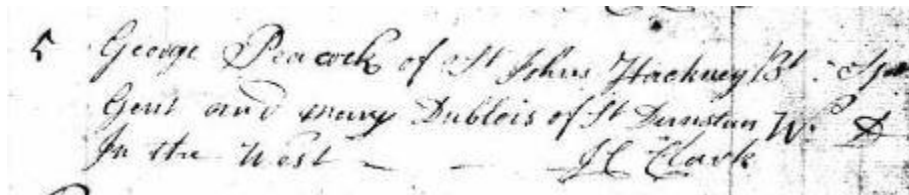 5 George Peacock of St Johns Hackney Bt
Gent and mary Dublois of St Dunstan Wo D
In the West - - J C Clark